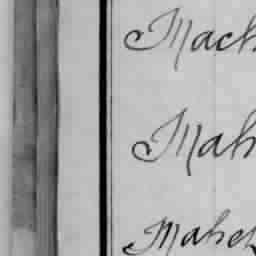 Mach
Mah
Maher